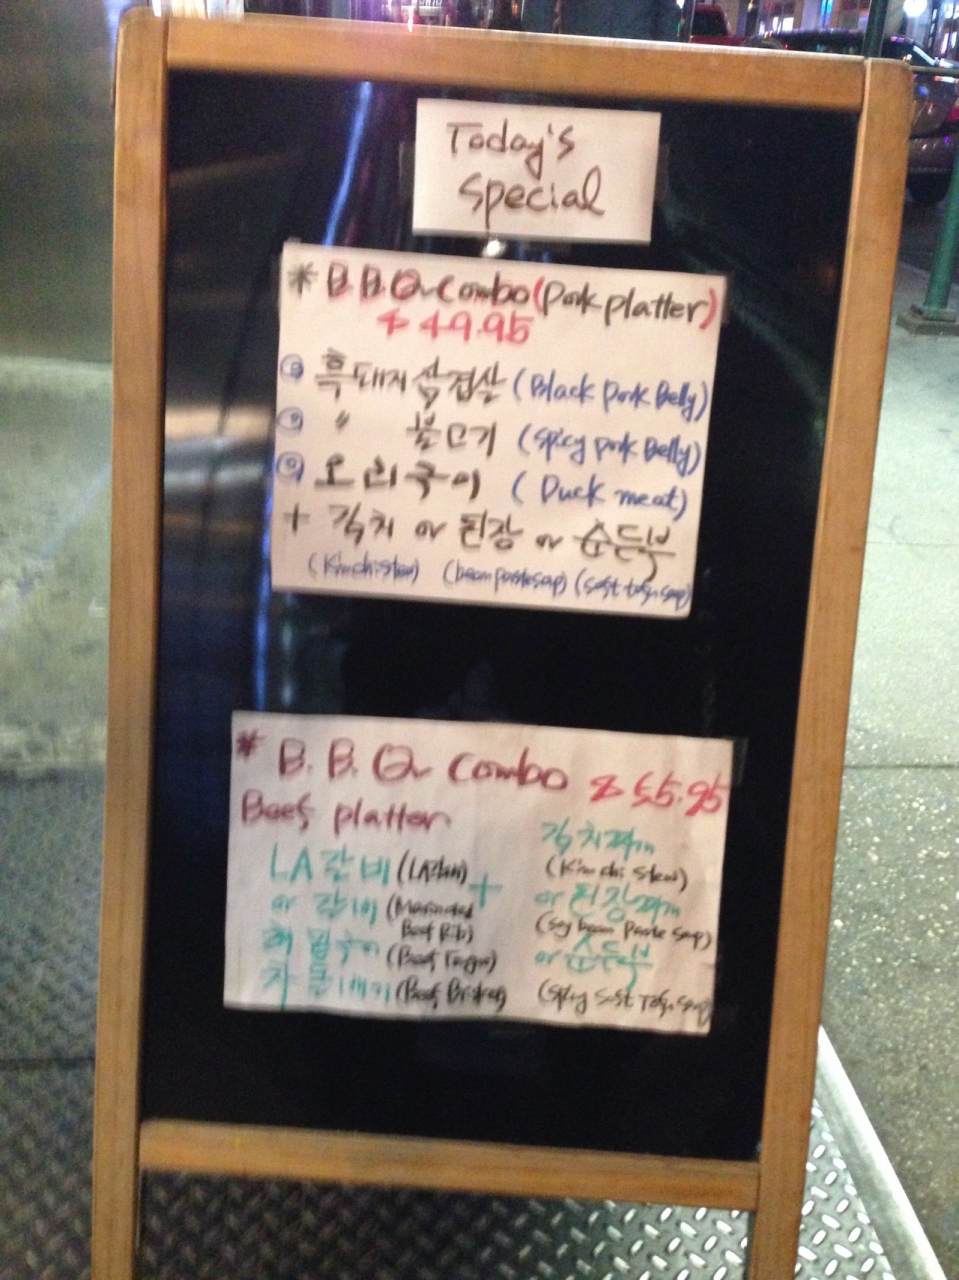 Today's
Special
* B.B.Q combo (pork platter)
$49.95
흑돼지 삼겹살 (Black pork Belly)
〃 불고기 (Spicy pork Belly)
오리구이 (Duck meat)
+ 김치 or 된장 or 순두부
(Kimchi stew) (bean paste soup) (soft tofu soup)
* B.B.Q combo $55.95
Beef platter
LA갈비 (LA Galbi) + 김치찌개
(Kimchi Stew)
or 갈비 (Marinated Beef Rib) or 된장찌개
(Soy bean paste soup)
혀밑구이 (Beef Tongue) or 순두부
차돌배기 (Beef Brisket) (Spicy Soft Tofu soup)